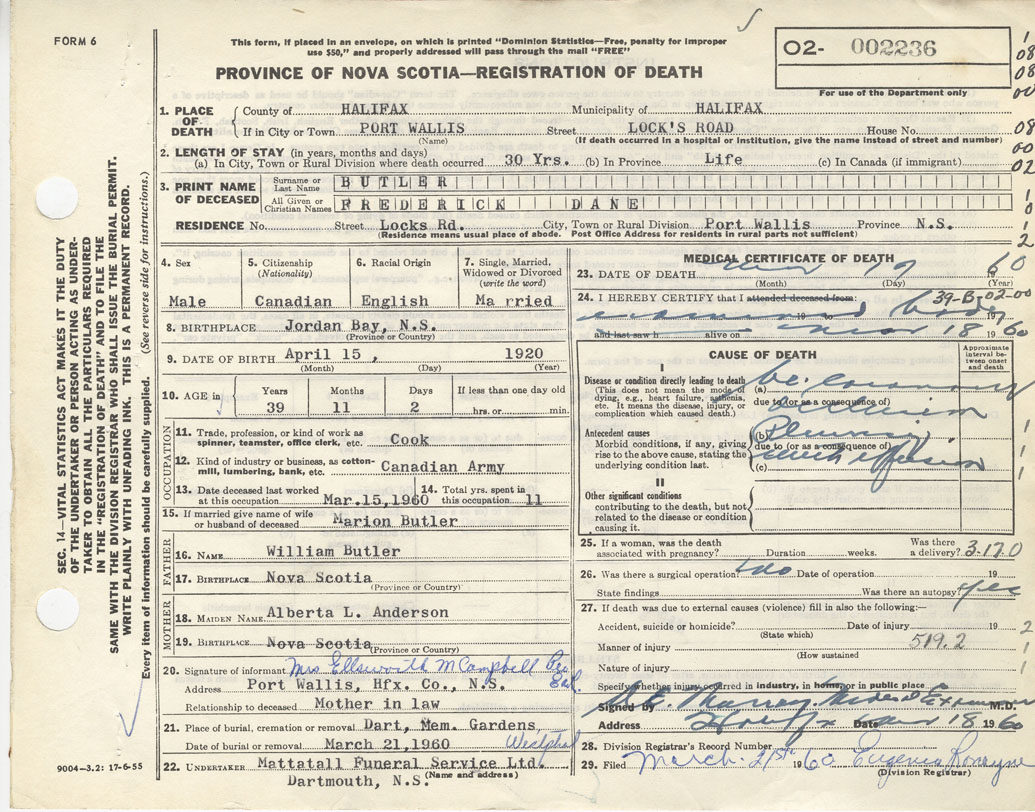 FORM 6
This form, if placed in an envelope, on which is printed "Dominion Statistics—Free, penalty for improper
use $50," and properly addressed will pass through the mail "FREE"
O2- 002236
PROVINCE OF NOVA SCOTIA—REGISTRATION OF DEATH
For use of the Department only
1. PLACE OF DEATH { County of HALIFAX Municipality of HALIFAX
If in City or Town PORT WALLIS Street LOCK'S ROAD House No.
(Name) (If death occurred in a hospital or institution, give the name instead of street and number)
2. LENGTH OF STAY (in years, months and days)
(a) In City, Town or Rural Division where death occurred 30 Yrs. (b) In Province Life (c) In Canada (if immigrant)
3. PRINT NAME OF DECEASED { Surname or Last Name BUTLER
All Given or Christian Names FREDERICK DANE
RESIDENCE No. Street Locks Rd. City, Town or Rural Division Port Wallis Province N.S.
(Residence means usual place of abode. Post Office Address for residents in rural parts not sufficient)
SEC. 14—VITAL STATISTICS ACT MAKES IT THE DUTY
OF THE UNDERTAKER OR PERSON ACTING AS UNDER-
TAKER TO OBTAIN ALL THE PARTICULARS REQUIRED
IN THE "REGISTRATION OF DEATH" AND TO FILE THE
SAME WITH THE DIVISION REGISTRAR WHO SHALL ISSUE THE BURIAL PERMIT.
WRITE PLAINLY WITH UNFADING INK. THIS IS A PERMANENT RECORD.
Every item of information should be carefully supplied. (See reverse side for instructions.)
4. Sex 5. Citizenship (Nationality) 6. Racial Origin 7. Single, Married, Widowed or Divorced (write the word)
Male Canadian English Married
8. BIRTHPLACE Jordan Bay, N.S.
(Province or Country)
9. DATE OF BIRTH April 15, 1920
(Month) (Day) (Year)
10. AGE in Years Months Days If less than one day old
39 11 2 hrs. or min.
OCCUPATION
11. Trade, profession, or kind of work as
spinner, teamster, office clerk, etc. Cook
12. Kind of industry or business, as cotton-
mill, lumbering, bank, etc. Canadian Army
13. Date deceased last worked at this occupation Mar.15,1960 14. Total yrs. spent in this occupation 11
15. If married give name of wife
or husband of deceased Marion Butler
FATHER
16. NAME William Butler
17. BIRTHPLACE Nova Scotia
(Province or Country)
MOTHER
18. MAIDEN NAME Alberta L. Anderson
19. BIRTHPLACE Nova Scotia
(Province or Country)
20. Signature of informant Mrs Ellsworth M Campbell
Address Port Wallis, Hfx. Co., N.S.
Relationship to deceased Mother in law
21. Place of burial, cremation or removal Dart, Mem. Gardens, Westphal
Date of burial or removal March 21,1960
22. UNDERTAKER Mattatall Funeral Service Ltd.
(Name and address)
Dartmouth, N.S.
9004-3.2: 17-6-55
MEDICAL CERTIFICATE OF DEATH
23. DATE OF DEATH 19 60
(Month) (Day) (Year)
24. I HEREBY CERTIFY that I attended deceased from: 39-B-02-00
examined 19 to body 19
and last saw h alive on Mar 18 1960
CAUSE OF DEATH
Approximate interval between onset and death
I
Disease or condition directly leading to death
(This does not mean the mode of
dying, e.g., heart failure, asthenia,
etc. It means the disease, injury, or
complication which caused death.)
(a)
due to (or as a consequence of)
Antecedent causes
Morbid conditions, if any, giving
rise to the above cause, stating the
underlying condition last.
(b) Pleurisy
due to (or as a consequence of)
(c) with effusion
II
Other significant conditions
contributing to the death, but not
related to the disease or condition
causing it.
25. If a woman, was the death
associated with pregnancy? Duration weeks. Was there a delivery? 3-17.0
26. Was there a surgical operation? No Date of operation 19
State findings Was there an autopsy? yes
27. If death was due to external causes (violence) fill in also the following:—
Accident, suicide or homicide? Date of injury 19
(State which)
Manner of injury 519.2
(How sustained
Nature of injury
Specify whether injury occurred in industry, in home, or in public place
Signed by Murray Medical Examiner M.D.
Address Halifax Date Mar 18 1960
28. Division Registrar's Record Number
29. Filed March 21st 1960 Eugenia Ronayne
(Division Registrar)